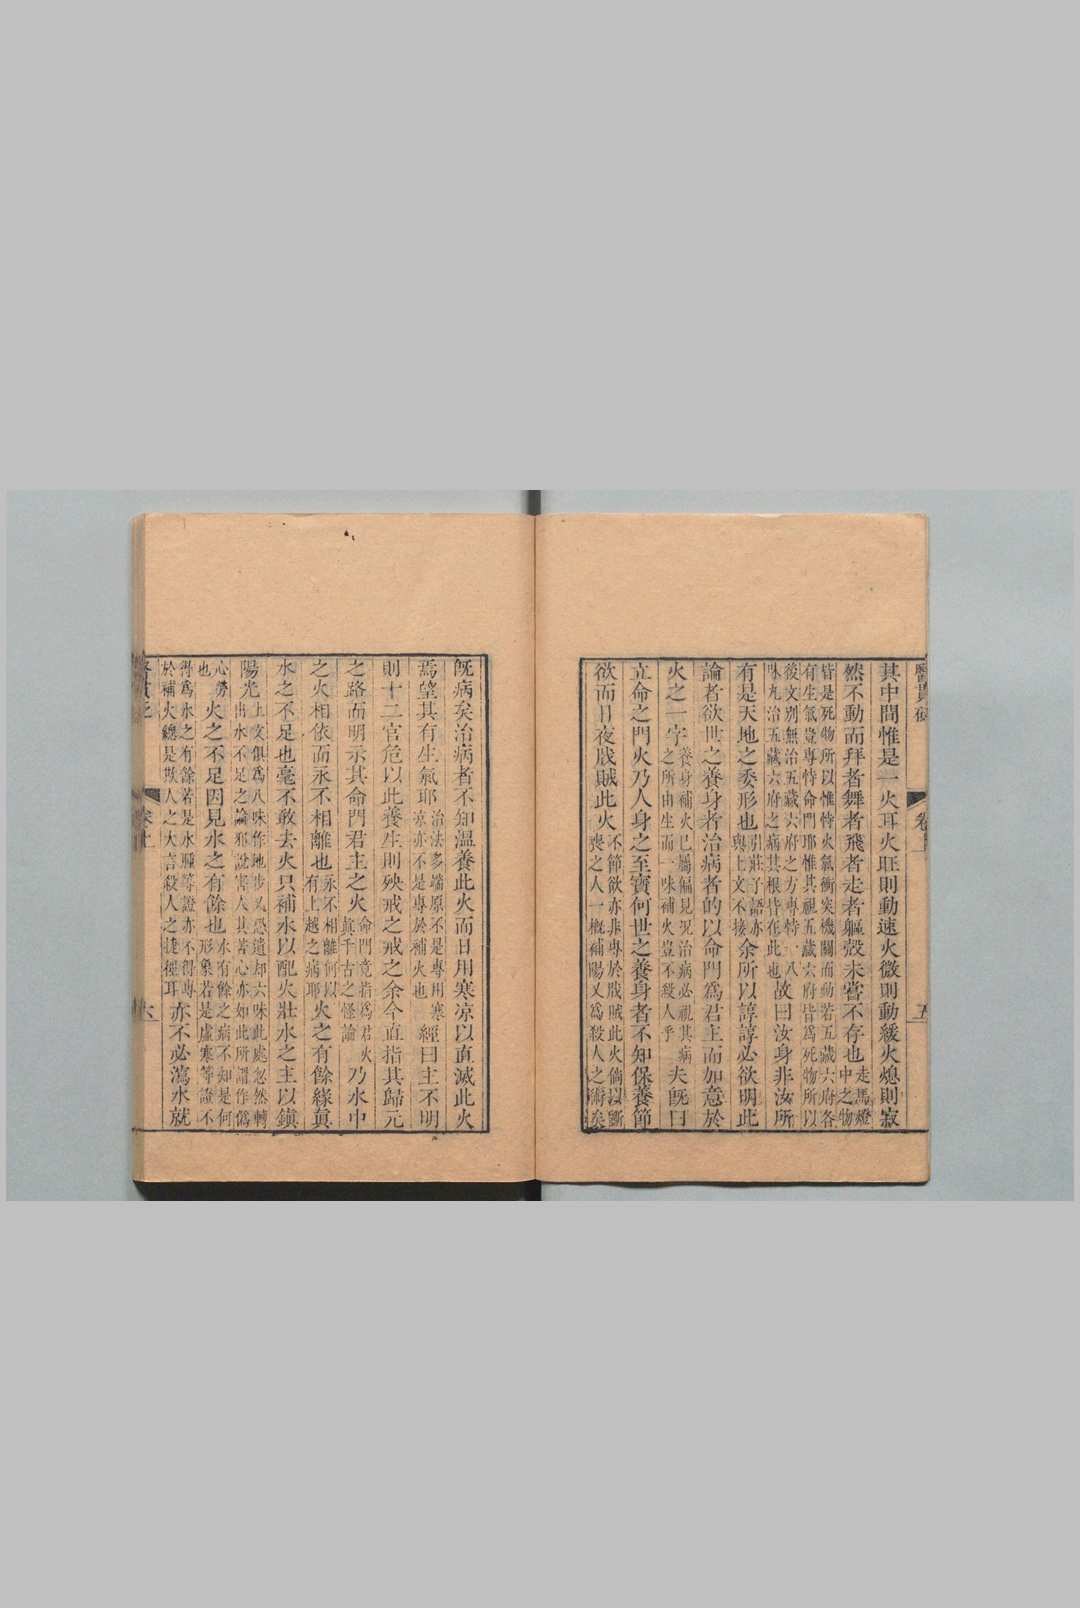 其中間惟是一火耳火旺則動速火微則動緩火熄則寂
然不動而拜者舞者飛者走者軀殼未嘗不存也走馬燈中之物
皆是死物所以惟恃火氣衝突機關而動若五藏六府各
有生氣豈專恃命門耶惟其視五藏六府皆爲死物所以
後文別無治五藏六府之方專恃一八
味丸治五藏六府之病其根皆在此也故曰汝身非汝所
有是天地之委形也引莊子語亦與上文不接余所以諄諄必欲明此
論者欲世之養身者治病者的以命門爲君主而加意於
火之一字養身補火已屬偏見况治病必視其病之所由生而一味補火豈不殺人乎夫旣曰
立命之門火乃人身之至寶何世之養身者不知保養節
欲而日夜戕賊此火不節欲亦非專於戕賊此火倘以斵喪之人一概補陽又爲殺人之術矣
卷上
五
旣病矣治病者不知温養此火而日用寒凉以直滅此火
焉望其有生氣耶治法多端原不是專用寒凉亦不是專於補火也經曰主不明
則十二官危以此養生則殃戒之戒之余今直指其歸元
之路而明示其命門君主之火命門竟指爲君火眞千古之怪論乃水中
之火相依而永不相離也永不相離何以有上越之病耶火之有餘緣眞
水之不足也毫不敢去火只補水以配火壯水之主以鎭
陽光上文俱爲八味作地步又恐遺却六味此處忽然轉出水不足之論邪說害人其苦心亦如此所謂作僞
心勞也火之不足因見水之有餘也水有餘之病不知是何形象若是虛寒等證不
得爲水之有餘若是水腫等證亦不得專
於補火總是欺人之大言殺人之捷徑耳亦不必瀉水就
醫貫砭
卷上
六